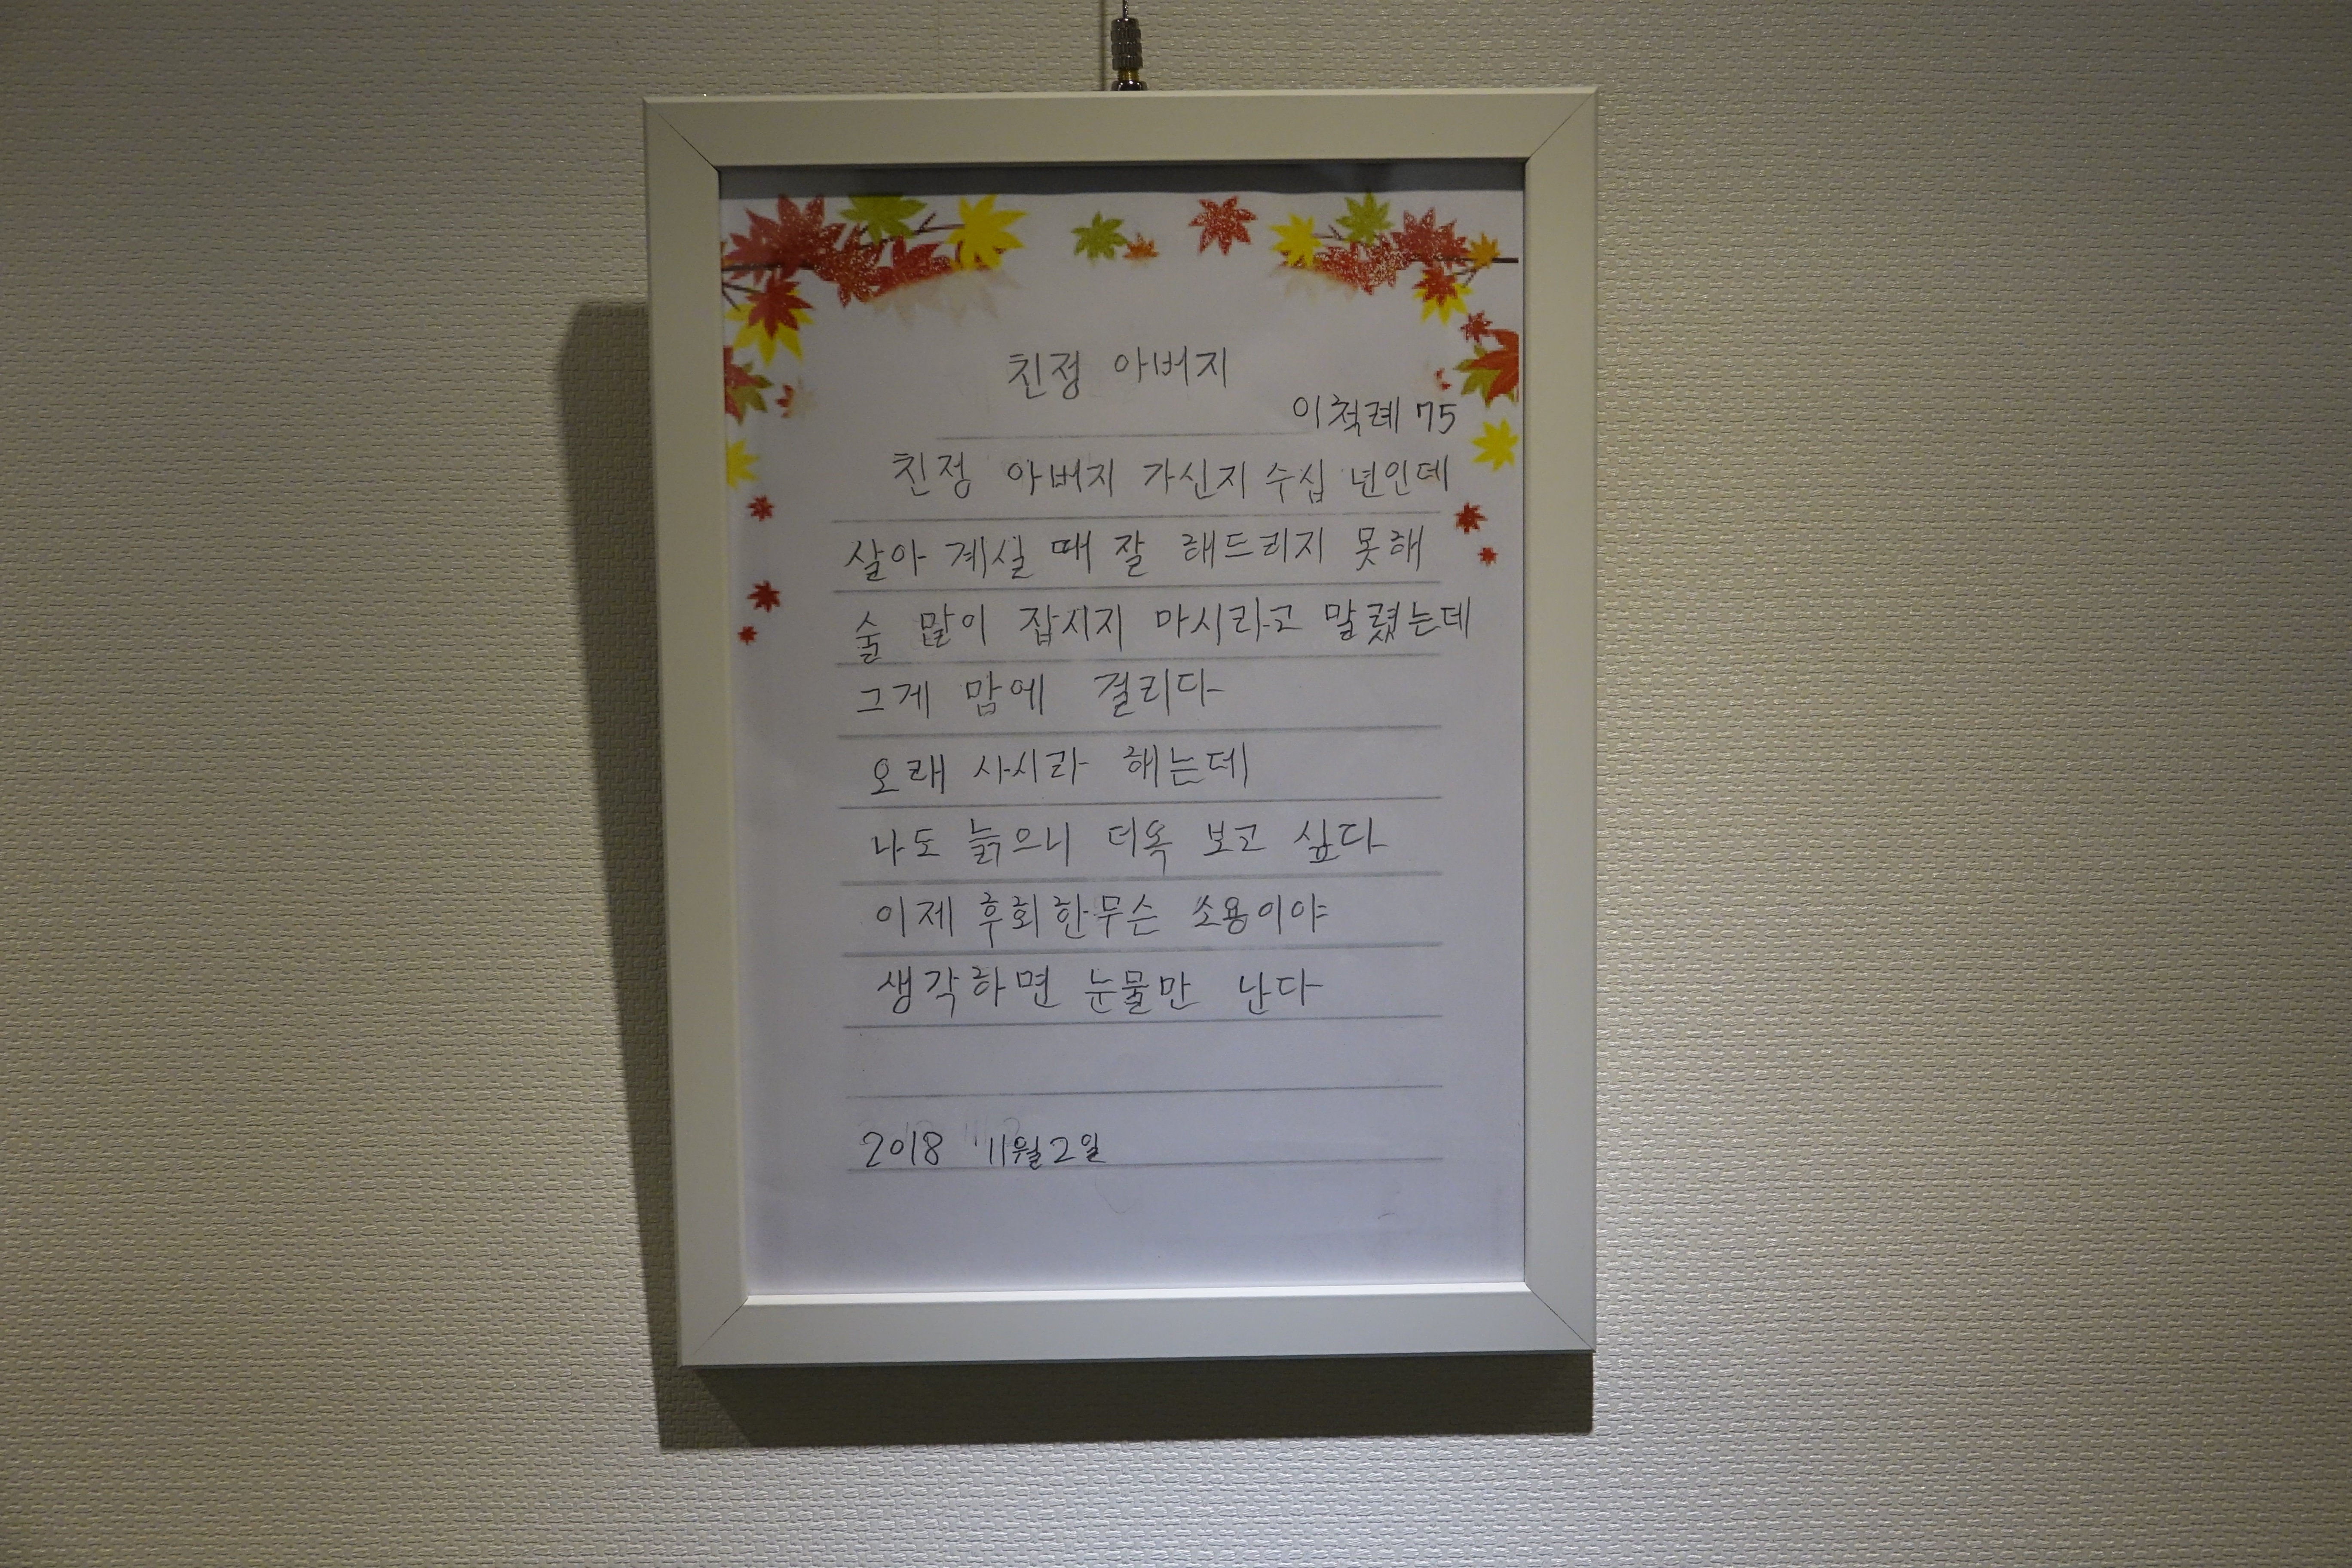 친정 아버지
이척례 75
친정 아버지 가신지 수십 년인데
살아 계실 때 잘 해드리지 못해
술 많이 잡시지 마시라고 말렸는데
그게 맘에 걸리다
오래 사시라 해는데
나도 늙으니 더욕 보고 싶다
이제 후회한무슨 소용이야
생각하면 눈물만 난다
2018 11월2일